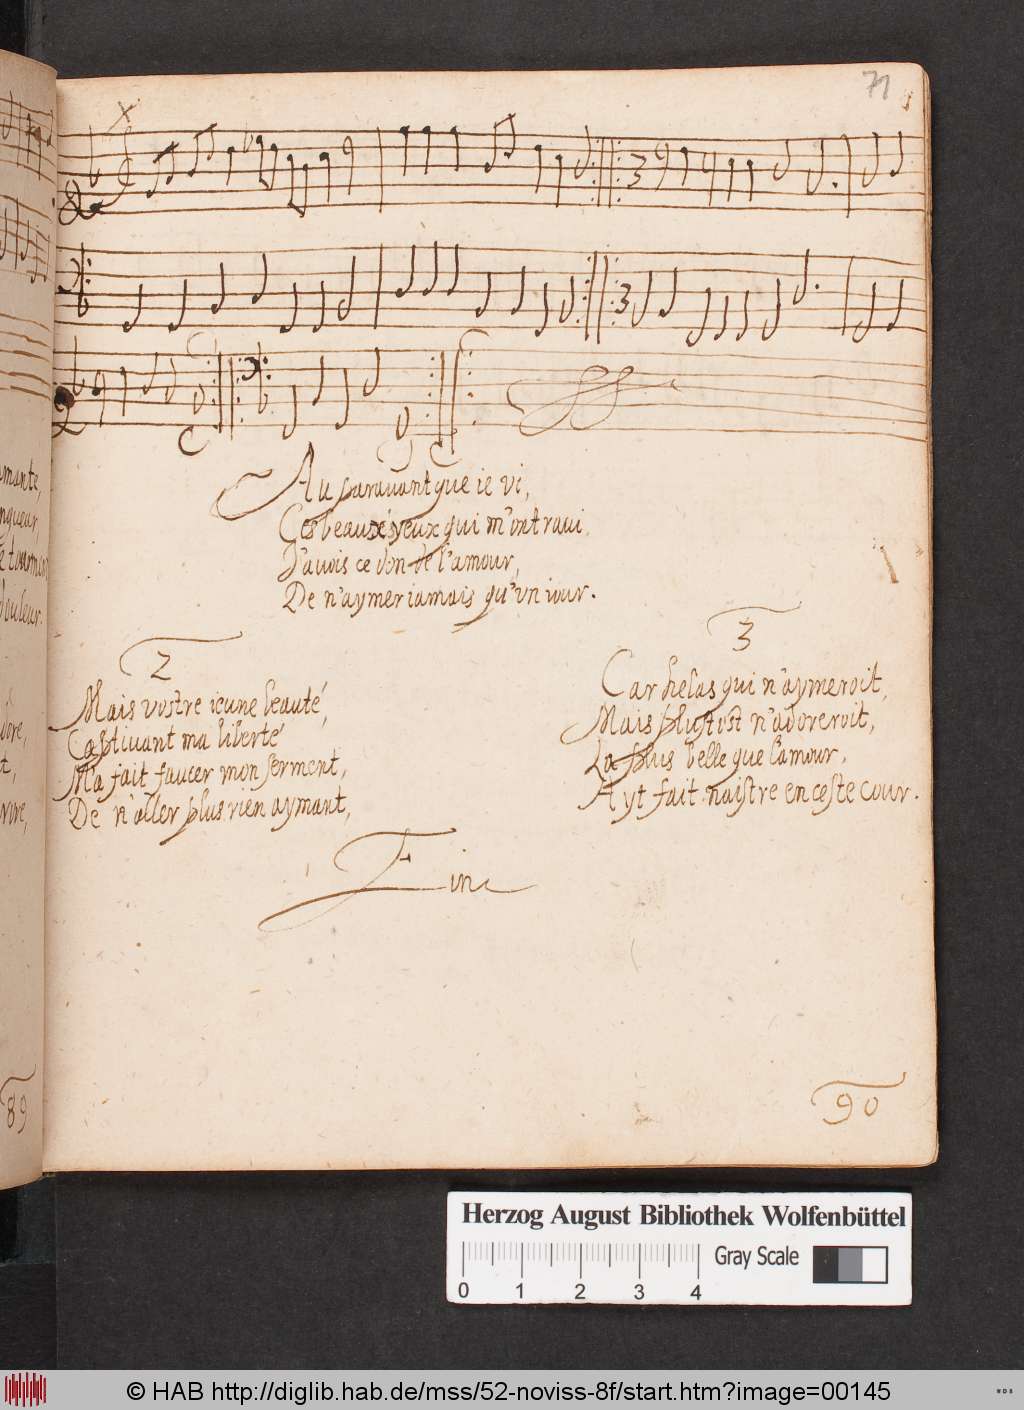 71
Au parauant que ie vi,
Ces beaux yeux qui m'ont raui
J'auois ce don de l'amour,
De n'aymer iamais qu'vn iour.
2
Mais vostre ieune beauté,
Captiuant ma liberté
M'a fait faucer mon serment,
De n'aller plus rien aymant,
3
Car helas qui n'aymeroit,
Mais plustost n'adoreroit,
La plus belle que l'amour,
Ayt fait naistre en ceste cour.
Fine
89
90
Herzog August Bibliothek Wolfenbüttel
Gray Scale
0 1 2 3 4
© HAB http://diglib.hab.de/mss/52-noviss-8f/start.htm?image=00145